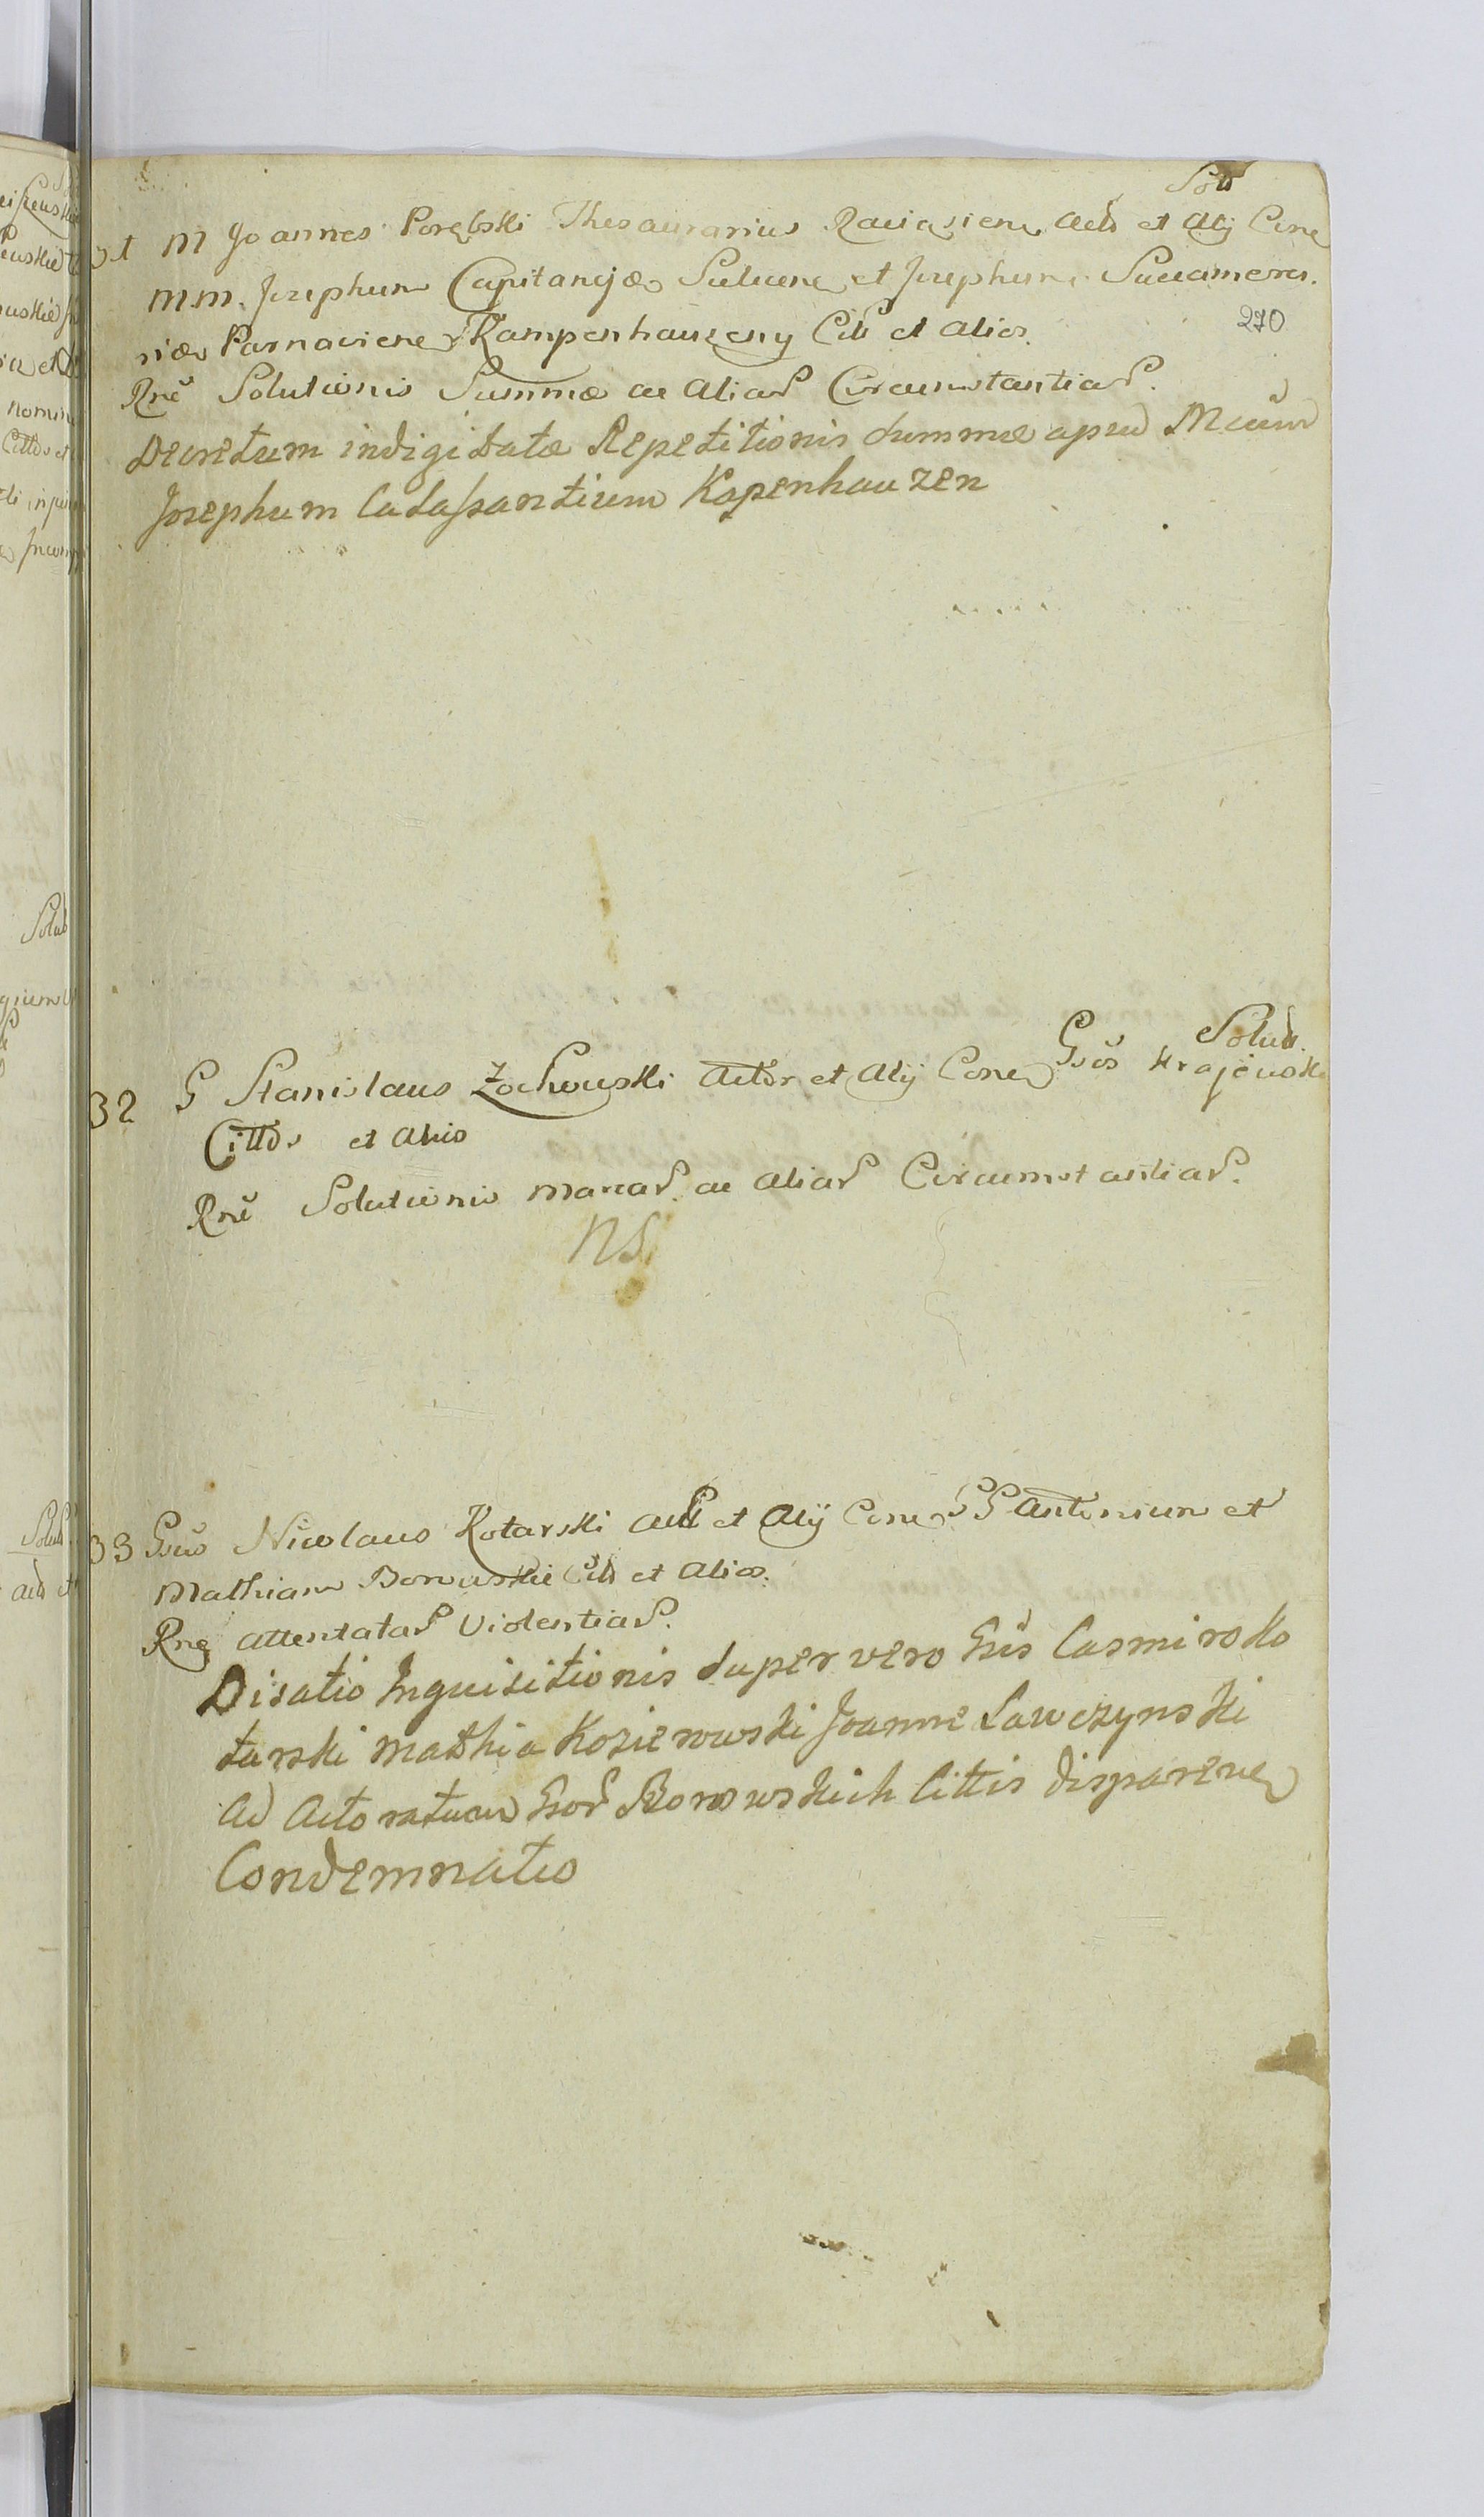 Solt
31 M Joannes Porębski Thesaurarius Raviasiene Actb et Alij Cone
M.M. Josephum Capitanejæ Sulicene et Josephum Succamera-
riæ Parnaviene Kampenhauzeny Citt et Alios.
270
Rne Solutionis Summæ ac Aliar Circumstantiar.
Decretum indigitatæ Repetitionis Summæ apud Mcum
Josephum Catassantium Kapenhauzen
Solut.
32 G Stanislaus Zochowski Actor et Alij Cone Gsos Krajewski
Cittos et Alios
Rne Solutionis Marcar. ac Aliar Circumstantiar.
NS
33 Gsus Nicolaus Kotarski Act et Alij Cone GG Antonium et
Mathiam Borowskie Citt et Alios.
Rne Attentatar Violentiar.
Disatio Inquisitionis Super vero Gsis Casimiro Ko
tarski Mathia Kozierowski Joanne Lawczynski
Ad Actoratum Gsor Borowskich Cittis disparene
Condemnatio